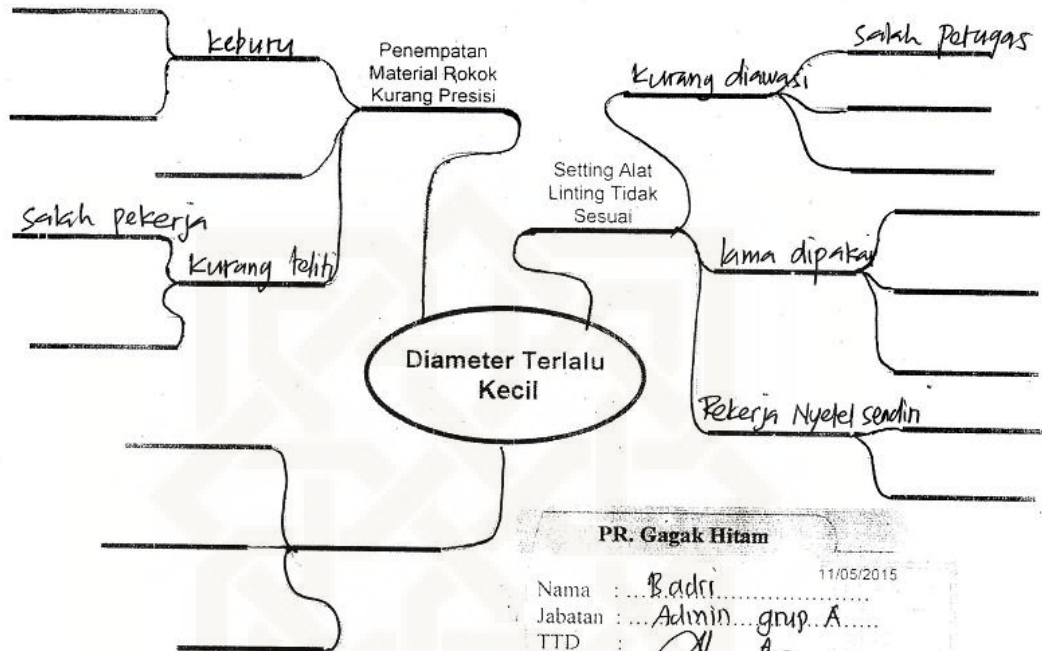 keburu
Penempatan
Material Rokok
Kurang Presisi
salah pekerja
Kurang teliti
salah petugas
Kurang diawasi
Setting Alat
Linting Tidak
Sesuai
lama dipakai
Pekerja Nyetel sendiri
Diameter Terlalu
Kecil
PR. Gagak Hitam
11/05/2015
Nama : Badri
Jabatan : Admin grup A
TTD :